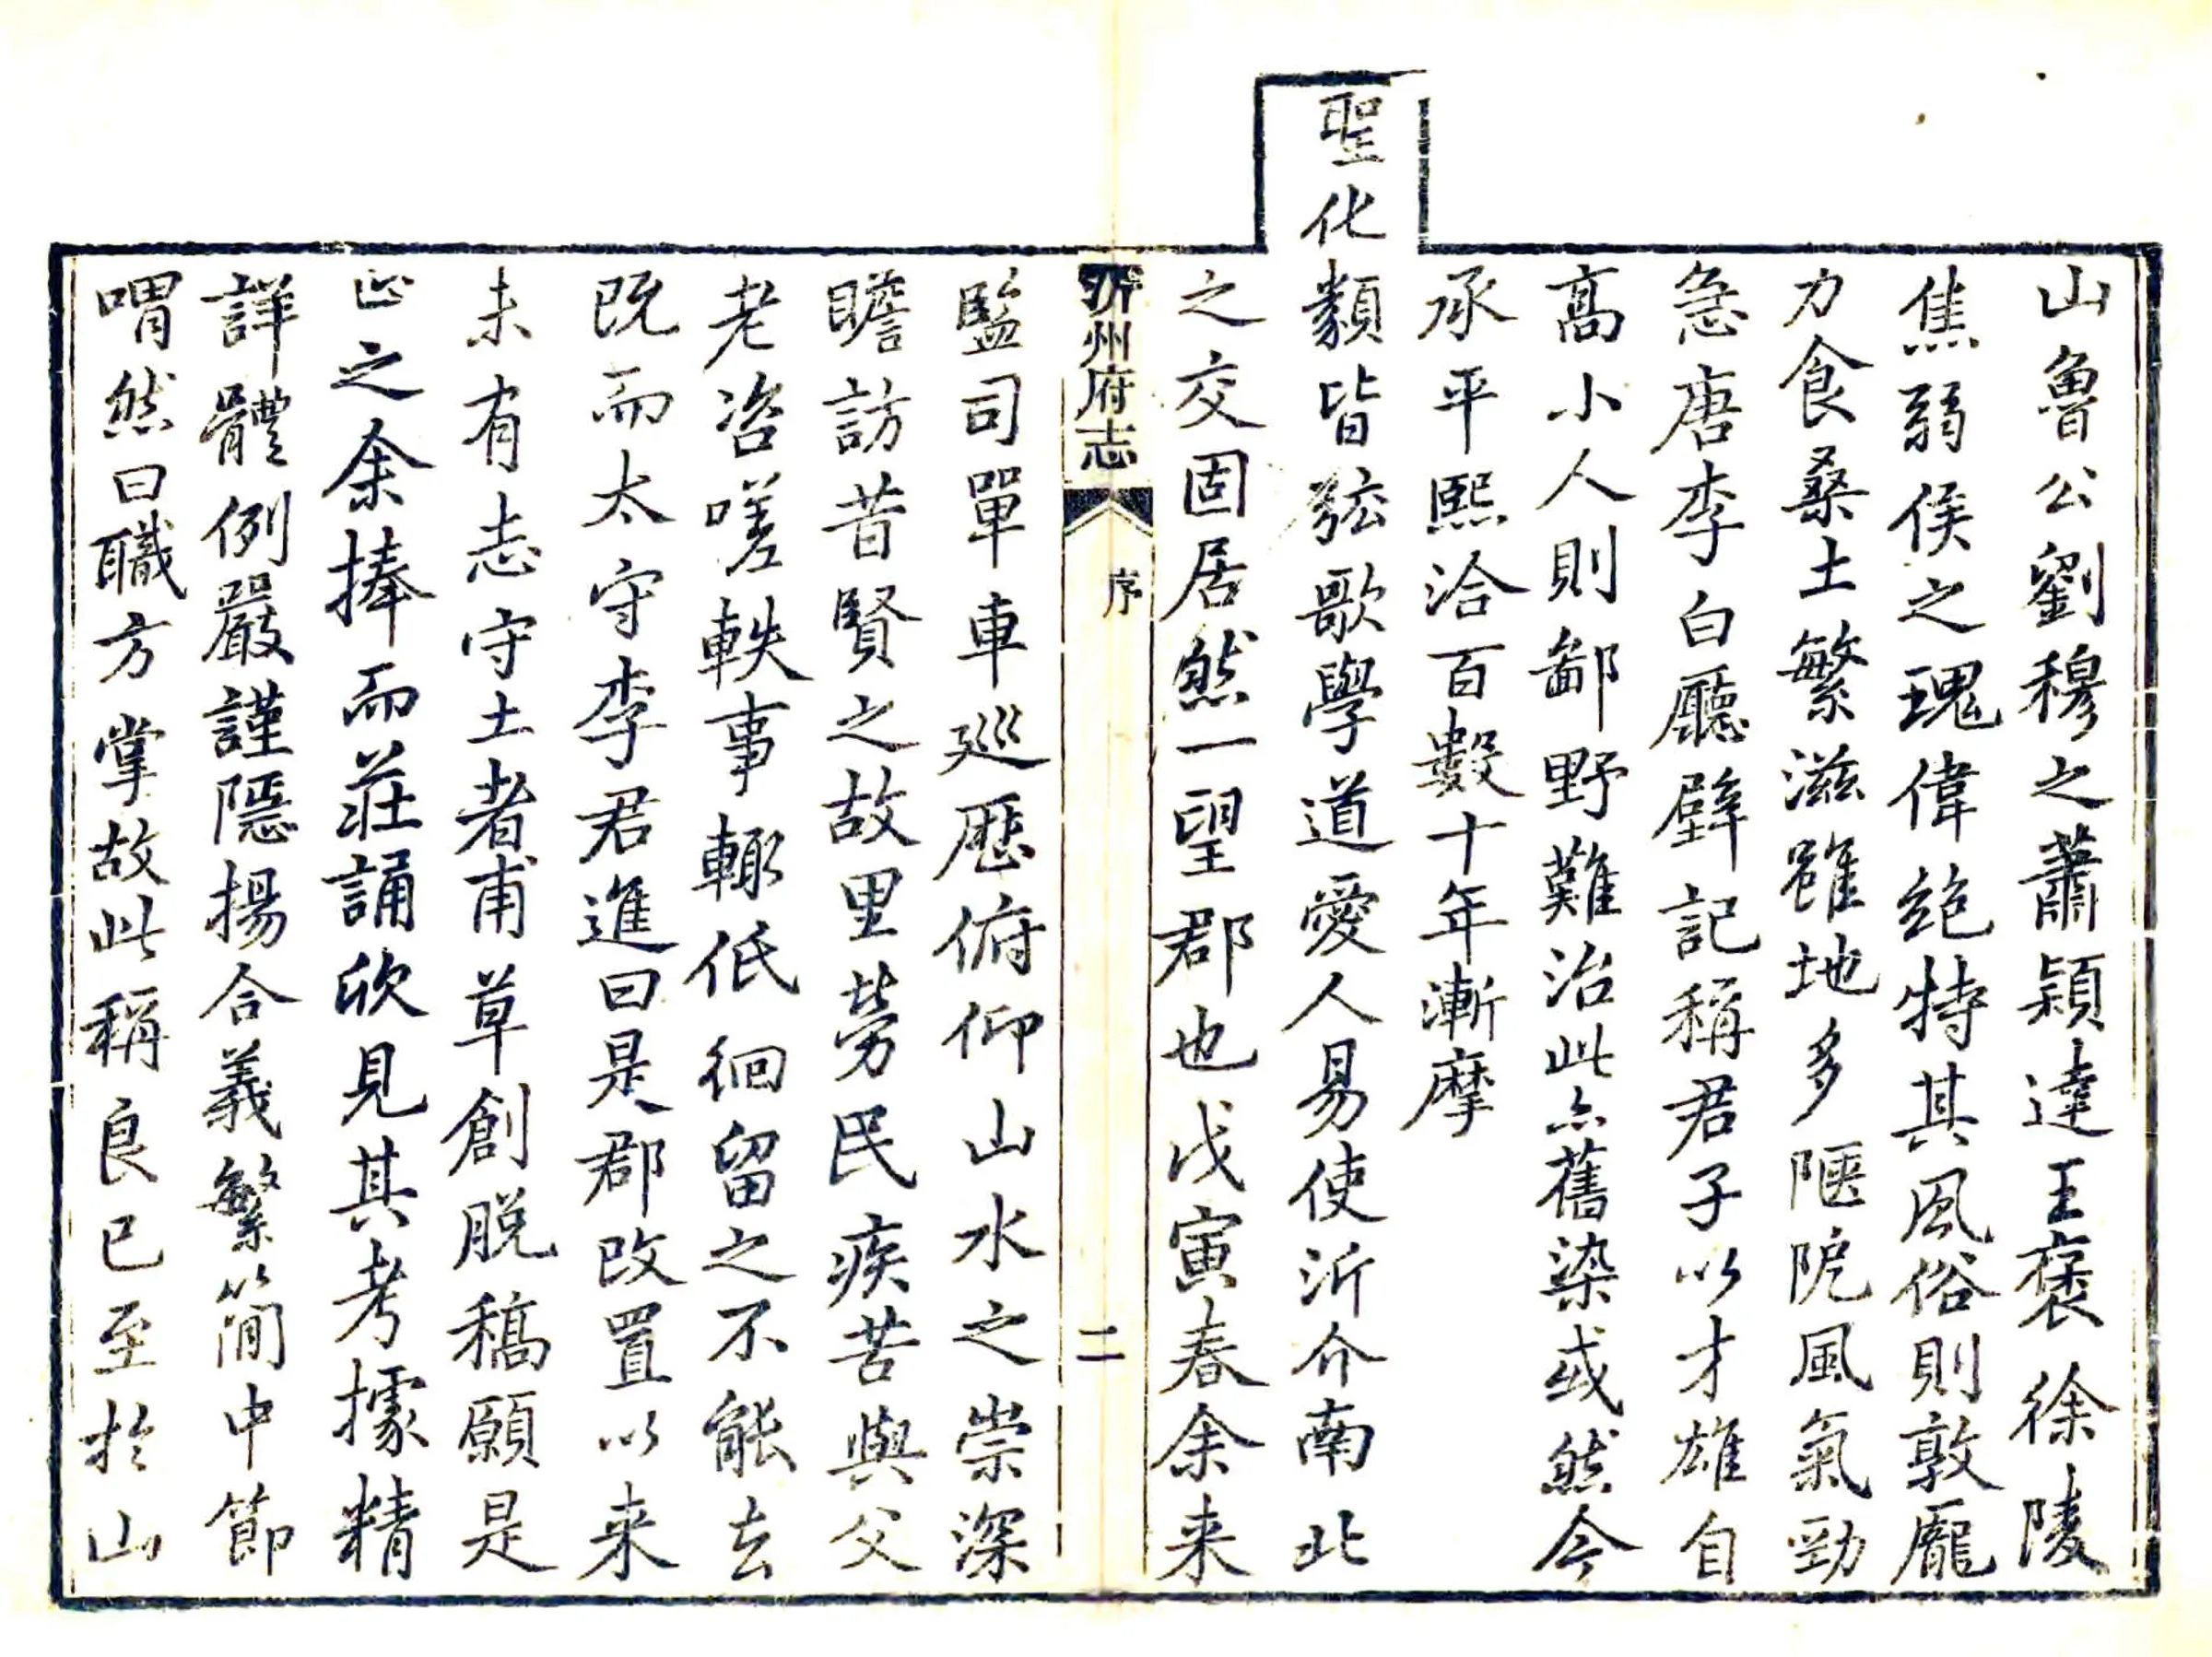 山魯公劉穆之蕭穎達王褒徐陵
焦弱侯之瑰偉絶特其風俗則敦龐
力食桑土繁滋雖地多陿阨風氣勁
急唐李白廳壁記稱君子以才雄自
高小人則鄙野難治此亦舊染或然今
承平熙洽百數十年漸摩
聖化類皆弦歌學道愛人易使沂介南北
之交固居然一望郡也戊寅春余来
沂州府志
序
二
監司單車巡歷俯仰山水之崇深
瞻訪昔賢之故里勞民疾苦與父
老咨嗟軼事輙低徊留之不能去
既而太守李君進曰是郡改置以来
未有志守土者甫草創脱稿願是
正之余捧而莊誦欣見其考據精
詳體例嚴謹隱揚合義繁簡中節
喟然曰職方掌故此稱良已至於山